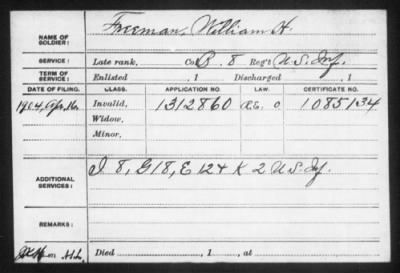 NAME OF SOLDIER: Freeman, William H.
SERVICE: Late rank, Co. B. 8 Reg't U.S. Inf.
TERM OF SERVICE: Enlisted , 1 Discharged , 1
DATE OF FILING. CLASS. APPLICATION NO. LAW. CERTIFICATE NO.
1904, Apr. 16. Invalid, 1312860 C. 1085134
Widow,
Minor,
ADDITIONAL SERVICES: I 8, G 18, E 12 & K 2 U.S. Inf.
REMARKS:
Died , 1 , at